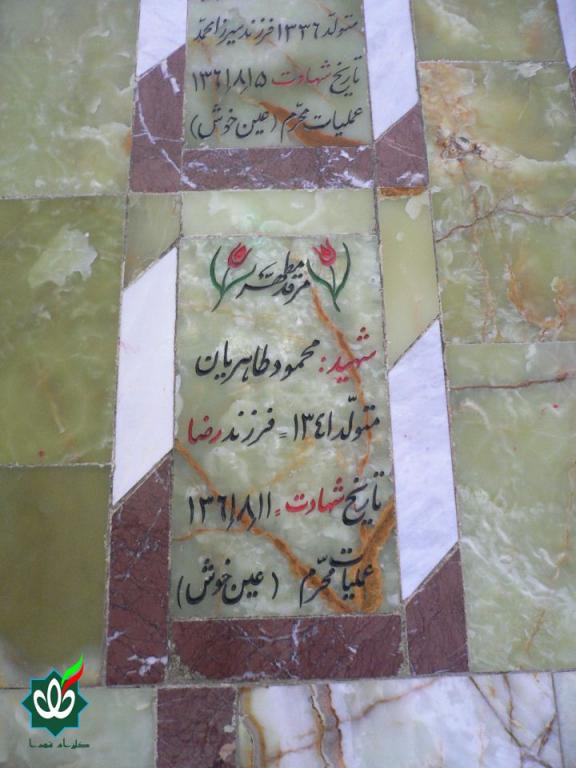 متولّد ۱۳۳۶ فرزند میرزا محمّد
تاریخ شهادت ۱۳۶۱/۸/۵
عملیات محرّم (عین خوش)
مرقد مطهّر
شهید: محمود طاهریان
متولّد ۱۳۴۱ = فرزند رضا
تاریخ شهادت = ۱۳۶۱/۸/۱۱
عملیات محرّم (عین خوش)
گلزار شهدا